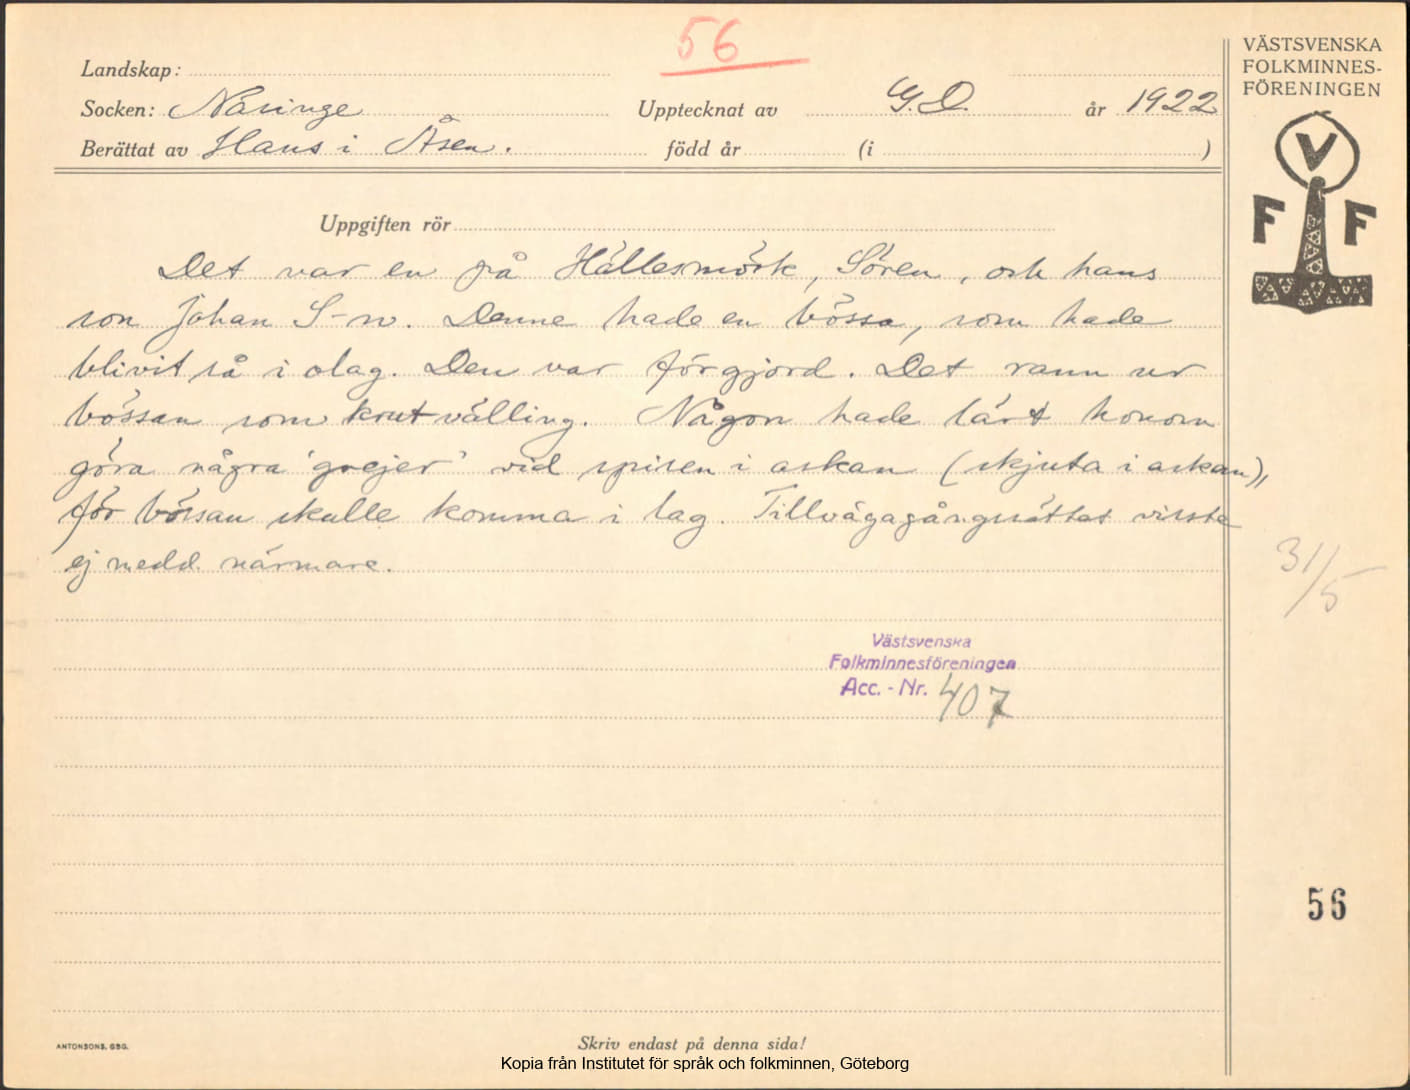 56
Landskap:
Socken: Näsinge Upptecknat av G. D. år 1922
Berättat av Hans i Åsen. född år (i )
VÄSTSVENSKA
FOLKMINNES-
FÖRENINGEN
V
F F
Uppgiften rör
Det var en på Hällesmörk, Sören, och hans
son Johan S-n. Denne hade en bössa, som hade
blivit så i olag. Den var förgjord. Det rann ur
bössan som krutvälling. Någon hade lärt honom
göra några 'grejer' vid spisen i askan (skjuta i askan),
för bössan skulle komma i lag. Tillvägagångssättet visste
ej medd. närmare.
31/5
Västsvenska
Folkminnesföreningen
Acc. - Nr. 407
56
ANTONSONS, GBG.
Skriv endast på denna sida!
Kopia från Institutet för språk och folkminnen, Göteborg